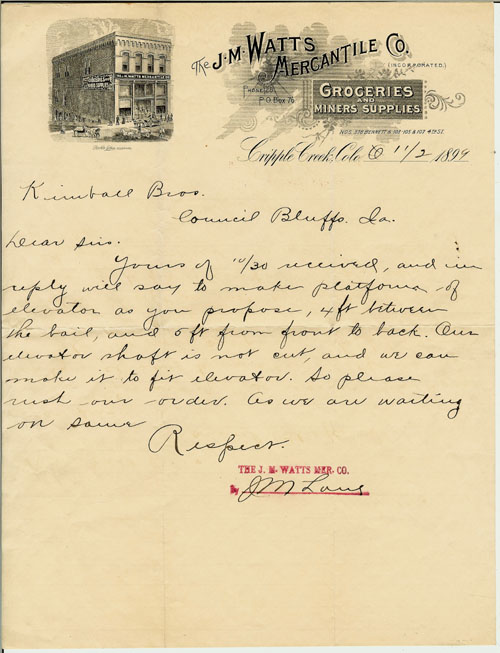 The J. M. WATTS
MERCANTILE CO.
(INCORPORATED.)
P.O. Box 76
GROCERIES
AND
MINERS SUPPLIES
NOS. 378 BENNETT & 101-105 & 107 4TH ST.
Cripple Creek, Colo 11/2 1899
Kimball Bros.
Council Bluffs. Ia.
Dear Sirs.
Yours of 10/30 received, and in
reply will say to make platform of
elevator as you propose, 4ft between
the bail, and 6ft from front to back. Our
elevator shaft is not cut, and we can
make it to fit elevator. So please
rush our order. As we are waiting
on same
Respect.
THE J. M. WATTS MER. CO.
By J M Lane